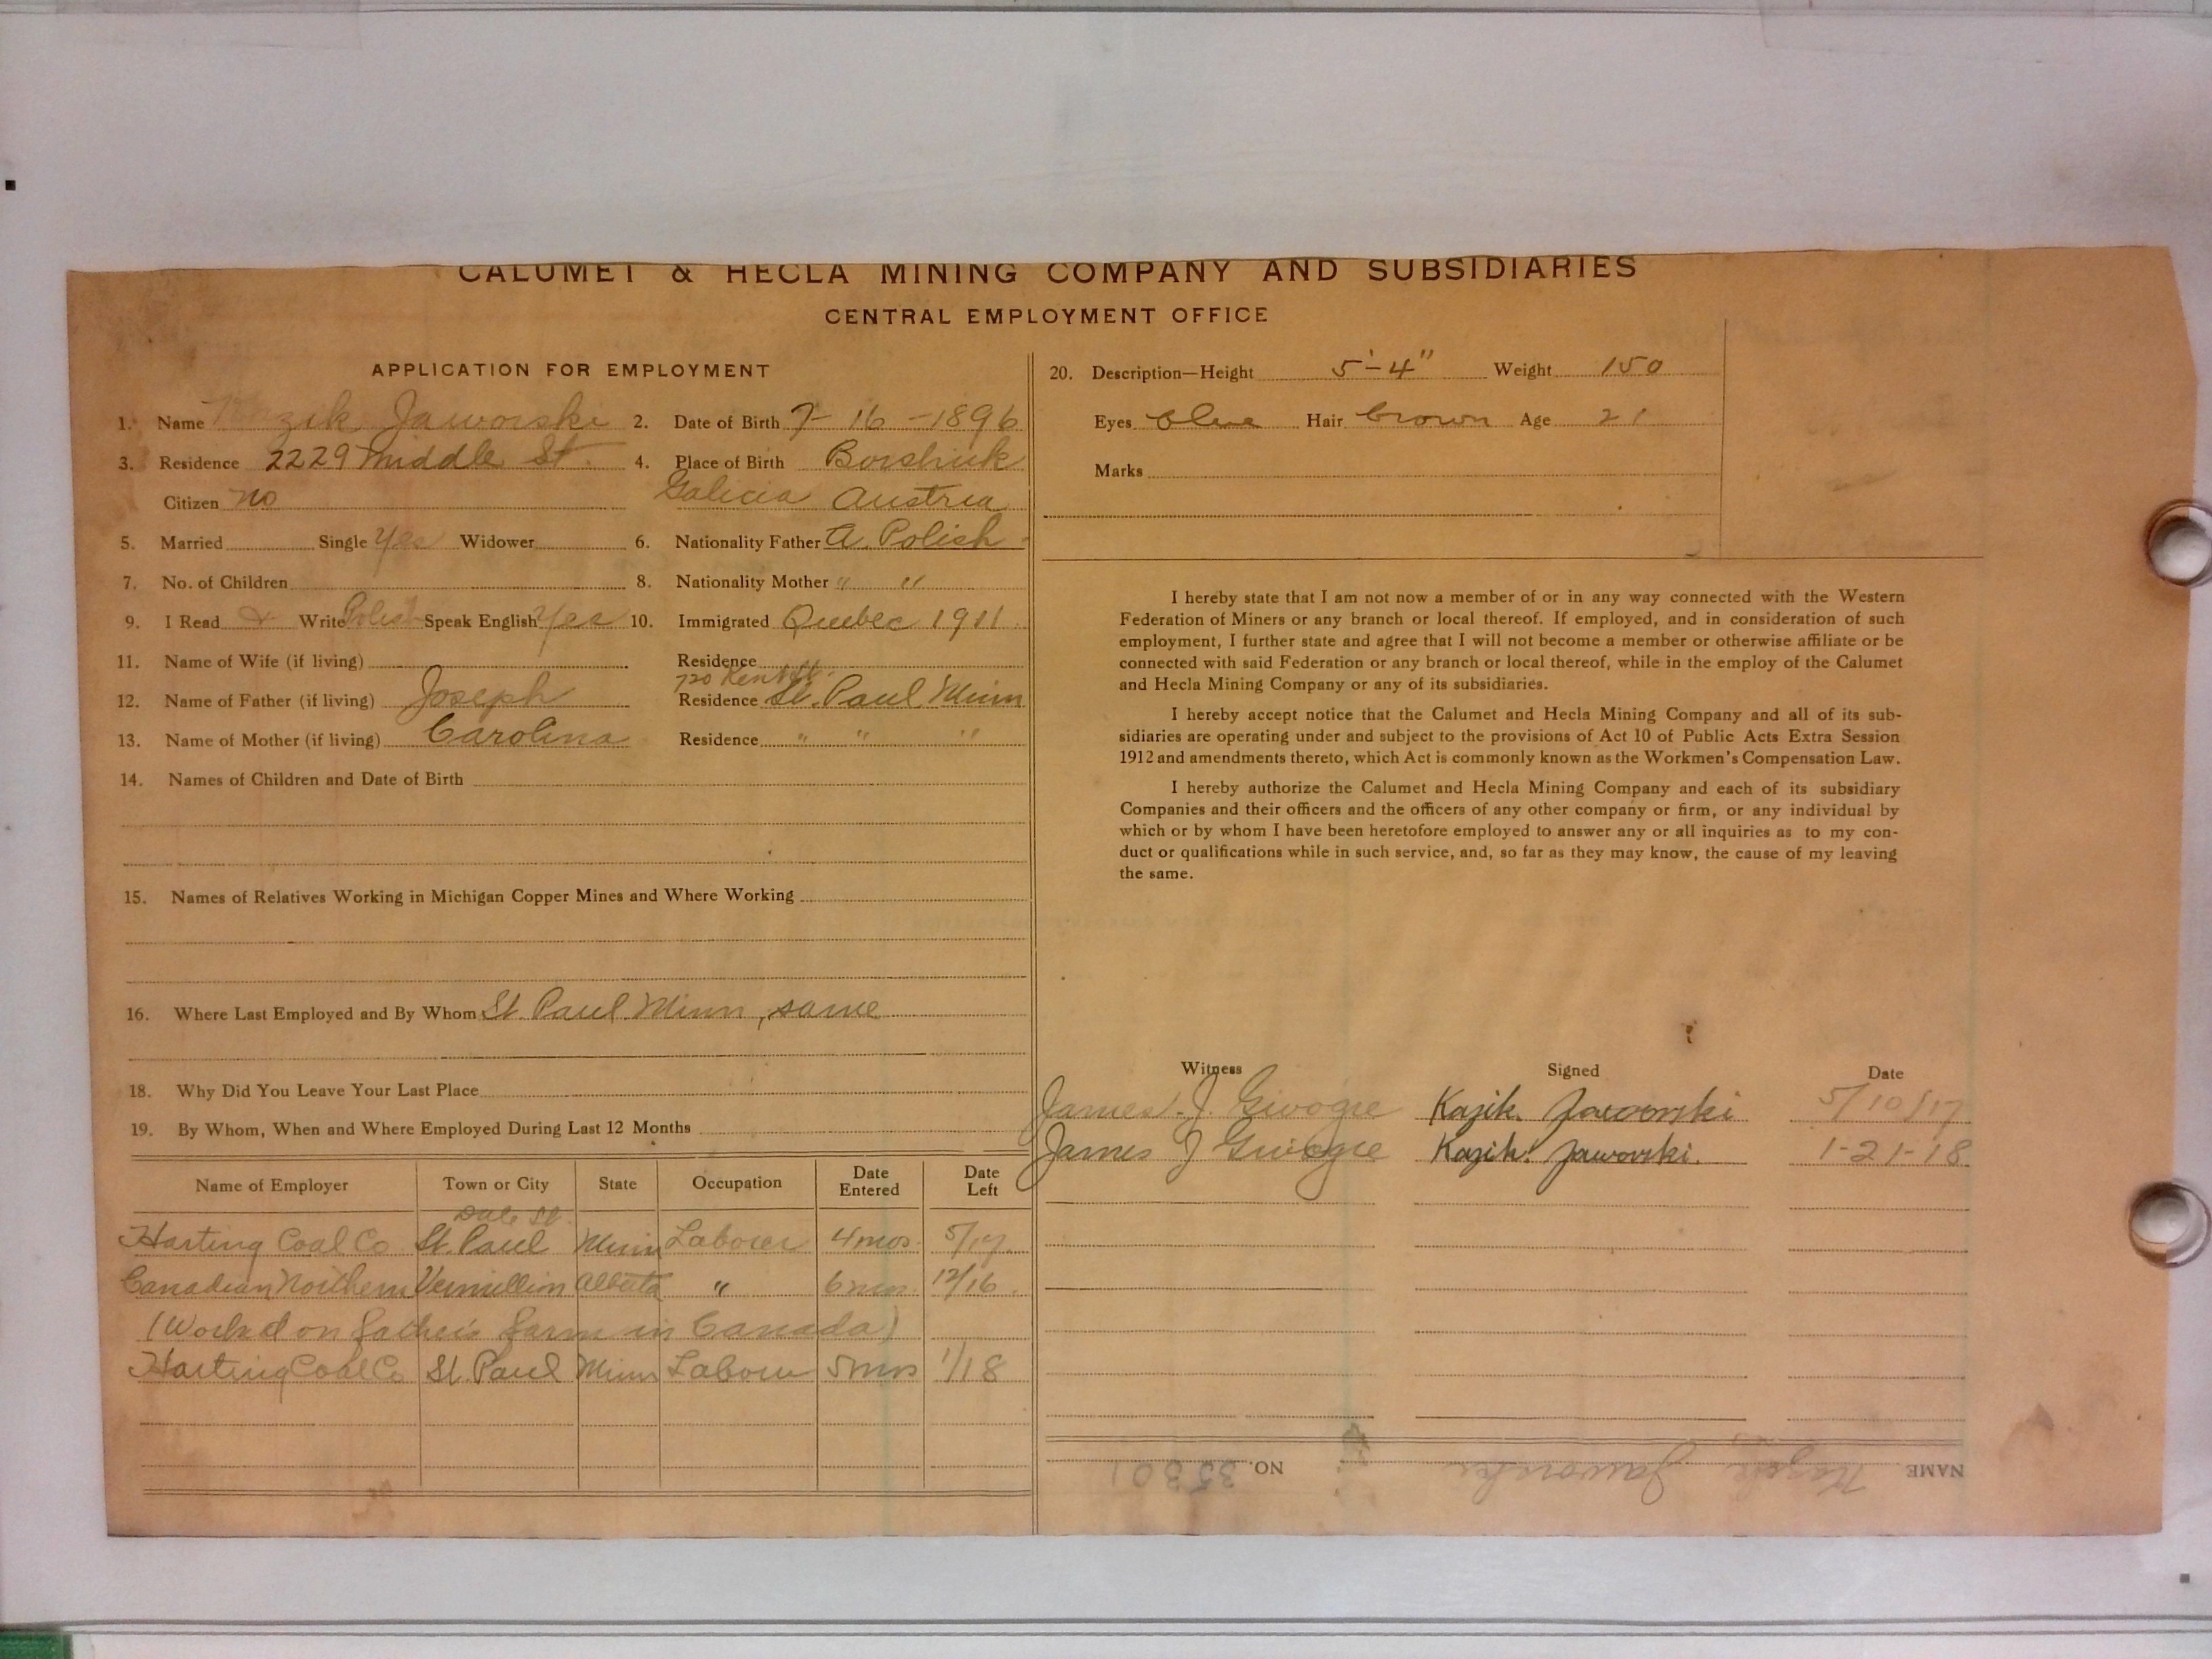 CALUMET & HECLA MINING COMPANY AND SUBSIDIARIES
CENTRAL EMPLOYMENT OFFICE
APPLICATION FOR EMPLOYMENT
1. Name Kazik Jaworski 2. Date of Birth 7-16-1896
3. Residence 2229 Middle St. 4. Place of Birth
Citizen no Galicia Austria
5. Married Single Yes Widower 6. Nationality Father A. Polish
7. No. of Children 8. Nationality Mother " "
9. I Read & Write Polish Speak English Yes 10. Immigrated Quebec 1911
11. Name of Wife (if living) Residence
720 Kent St.
12. Name of Father (if living) Joseph Residence St. Paul Minn
13. Name of Mother (if living) Carolina Residence " " "
14. Names of Children and Date of Birth
15. Names of Relatives Working in Michigan Copper Mines and Where Working
16. Where Last Employed and By Whom St. Paul Minn, same
18. Why Did You Leave Your Last Place
19. By Whom, When and Where Employed During Last 12 Months
Name of Employer Town or City State Occupation Date Entered Date Left
Dale St.
Harting Coal Co St. Paul Minn Laborer 4 mos. 5/17
Canadian Northern Vermillion Alberta " 6 mos. 12/16
(Worked on father's farm in Canada)
Harting Coal Co St. Paul Minn Labour 5 mos 1/18
20. Description—Height 5'-4" Weight 150
Eyes blue Hair brown Age 21
Marks
I hereby state that I am not now a member of or in any way connected with the Western
Federation of Miners or any branch or local thereof. If employed, and in consideration of such
employment, I further state and agree that I will not become a member or otherwise affiliate or be
connected with said Federation or any branch or local thereof, while in the employ of the Calumet
and Hecla Mining Company or any of its subsidiaries.
I hereby accept notice that the Calumet and Hecla Mining Company and all of its sub-
sidiaries are operating under and subject to the provisions of Act 10 of Public Acts Extra Session
1912 and amendments thereto, which Act is commonly known as the Workmen's Compensation Law.
I hereby authorize the Calumet and Hecla Mining Company and each of its subsidiary
Companies and their officers and the officers of any other company or firm, or any individual by
which or by whom I have been heretofore employed to answer any or all inquiries as to my con-
duct or qualifications while in such service, and, so far as they may know, the cause of my leaving
the same.
Witness Signed Date
James J. Kazik Jaworski 5/10/17
James J Kazik Jaworski. 1-21-18
NAME Kazik Jaworski NO. 35301